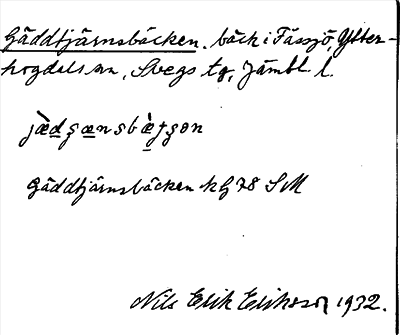 Gäddtjärnsbäcken. bäck i Fåssjö, Ytter-
hogdals sn, Svegs tg, Jämtl l.
Gäddtjärnsbäcken hG 78 SM
Nils Erik Eriksson 1932.